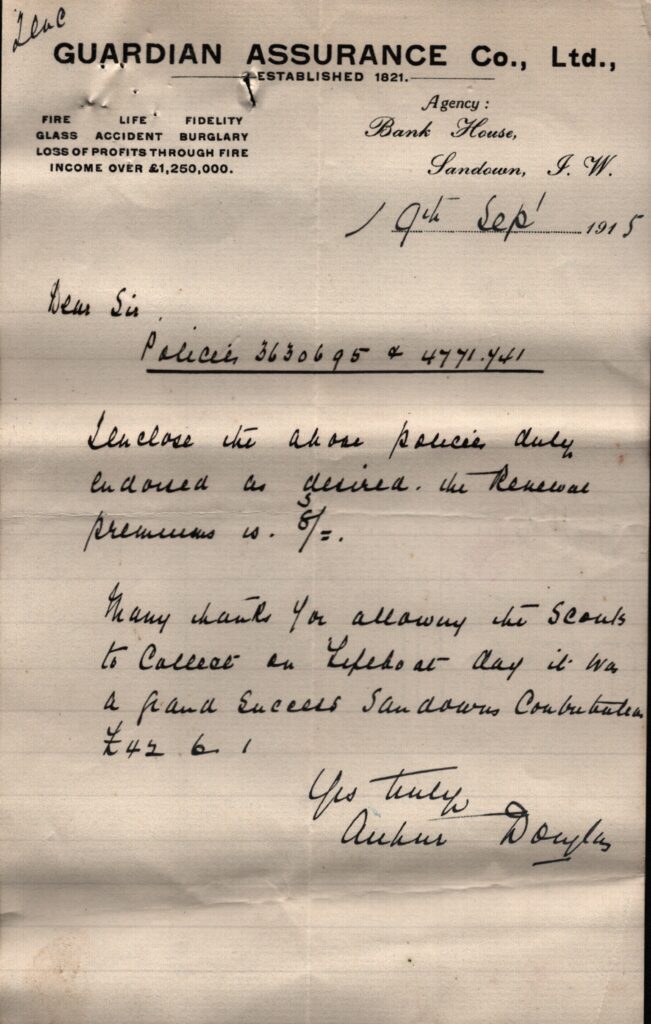 GUARDIAN ASSURANCE Co., Ltd.,
ESTABLISHED 1821.
FIRE LIFE FIDELITY
GLASS ACCIDENT BURGLARY
LOSS OF PROFITS THROUGH FIRE
INCOME OVER £1,250,000.
Agency:
Bank House,
Sandown, I. W.
9th Sepr 1915
Dear Sir,
Policies 3630695 & 4771.741
I enclose the above policies duly
endorsed as desired. the Renewal
premiums is.
Many thanks for allowing the Scouts
to Collect on Lifeboat day it was
a grand Success Sandowns Contribution
£42 6 1
Yrs truly
Arthur Douglas